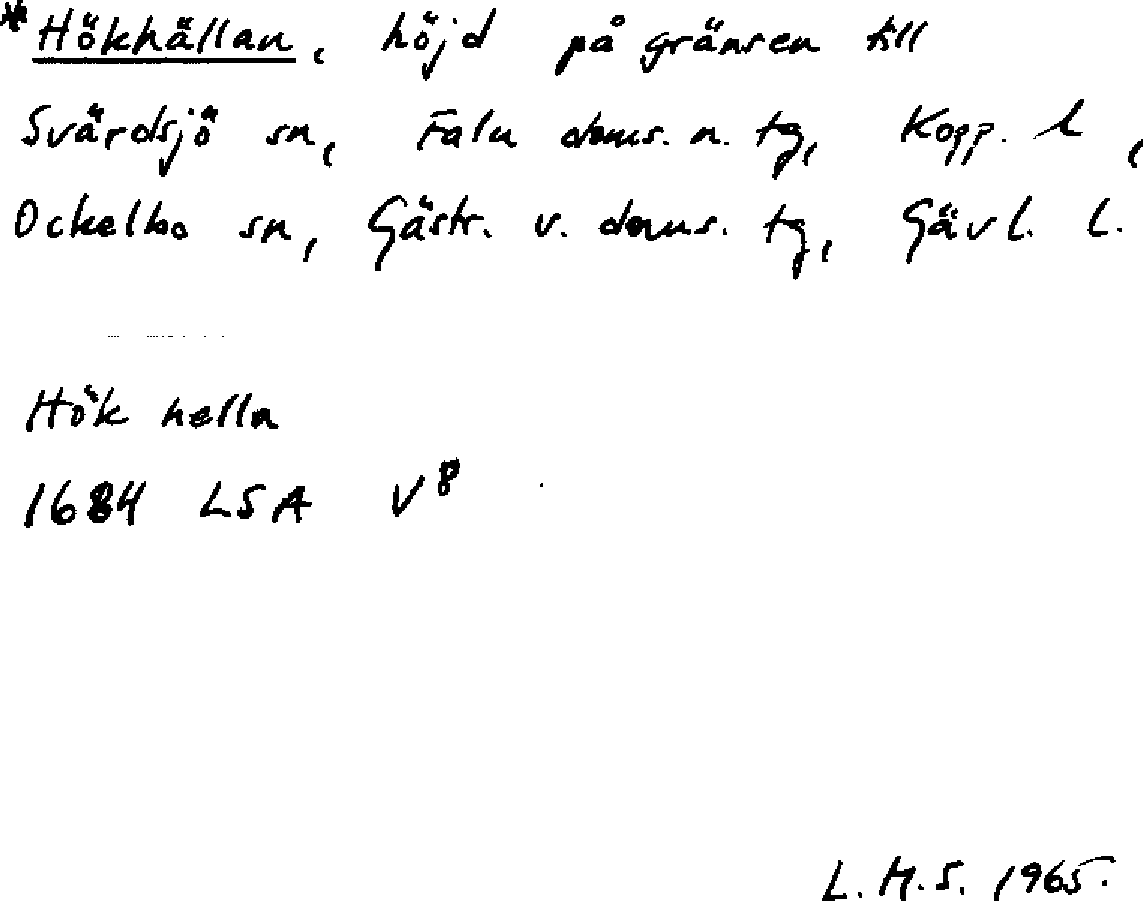 * Hökhällan, höjd på gränsen till
Svärdsjö sn, Falu doms. n. tg, Kopp. l,
Ockelbo sn, Gästr. v. doms. tg, Gävl. l.
Hök hella
1684 LSA V⁸
L. H. S. 1965.